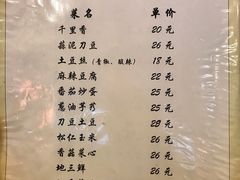 菜名 单价
千里香 20元
蒜泥刀豆 26元
土豆丝（青椒、酸辣） 18元
麻辣豆腐 22元
番茄炒蛋 25元
葱油芋艿 25元
刀豆土豆 29元
松仁玉米 26元
香菇菜心 26元
地三鲜 26元